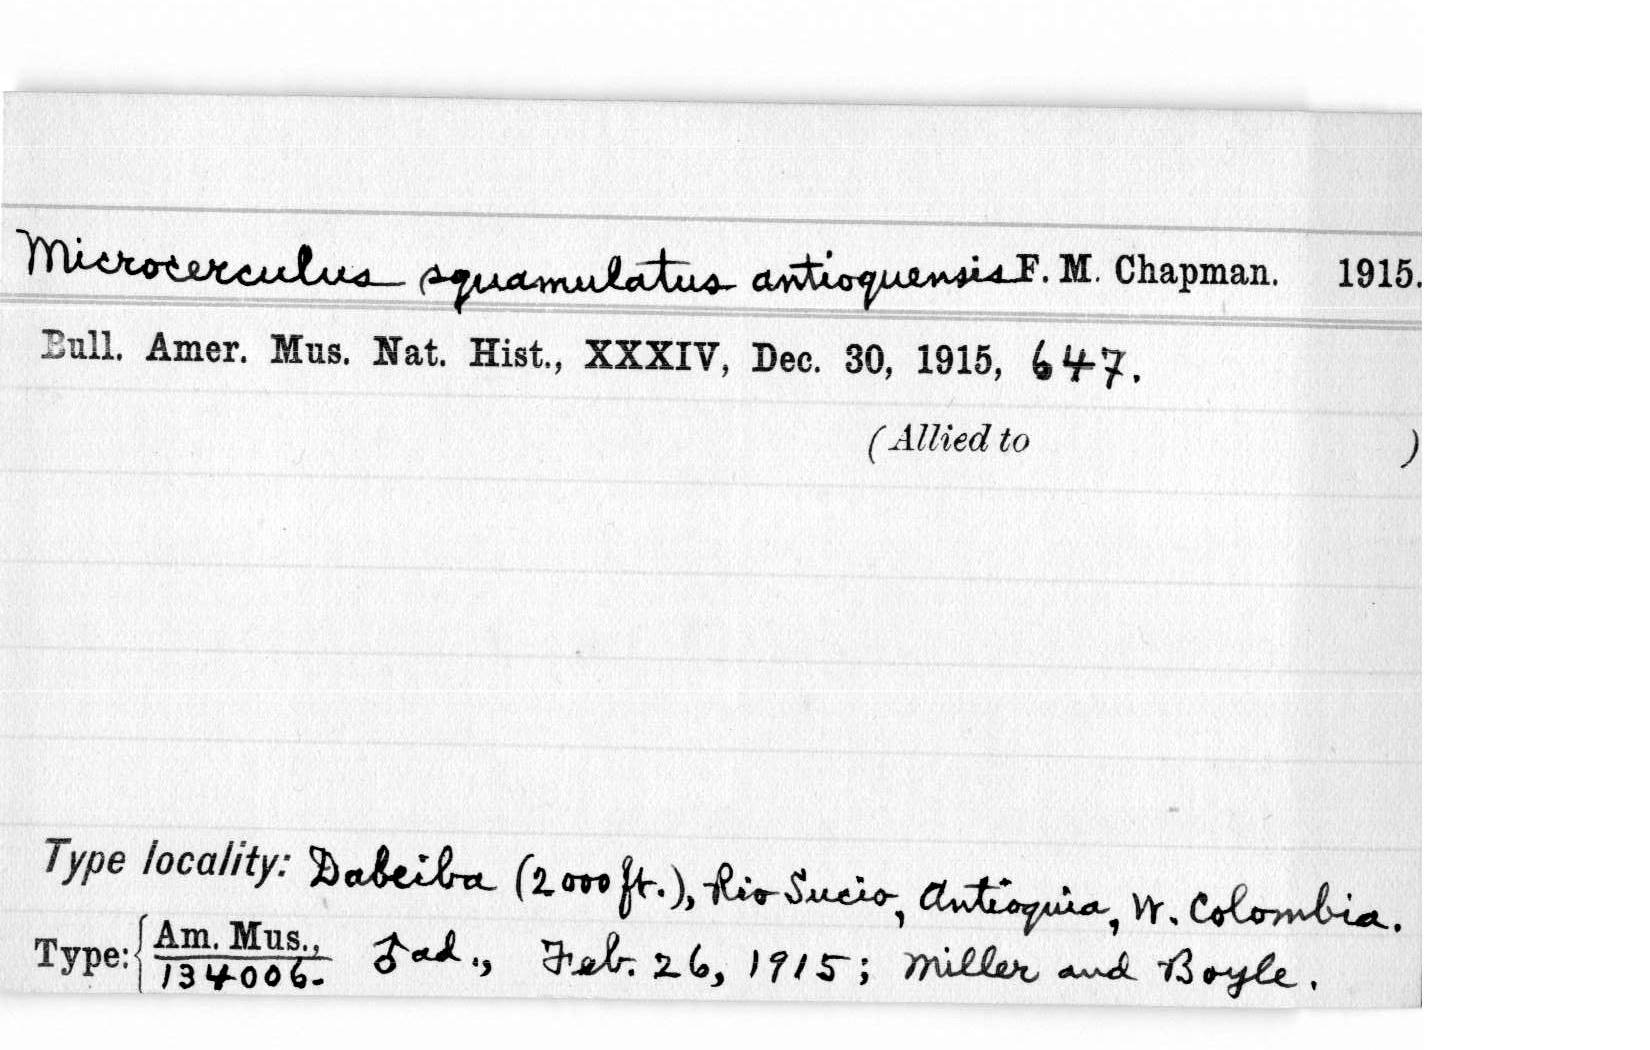 Microcerculus squamulatus antioquensis F. M. Chapman. 1915.
Bull. Amer. Mus. Nat. Hist., XXXIV, Dec. 30, 1915, 647.
(Allied to )
Type locality: Dabeiba (2000 ft.), Rio Sucio, Antioquia, W. Colombia.
Type: { Am. Mus., 134006. ♂ ad., Feb. 26, 1915; Miller and Boyle.